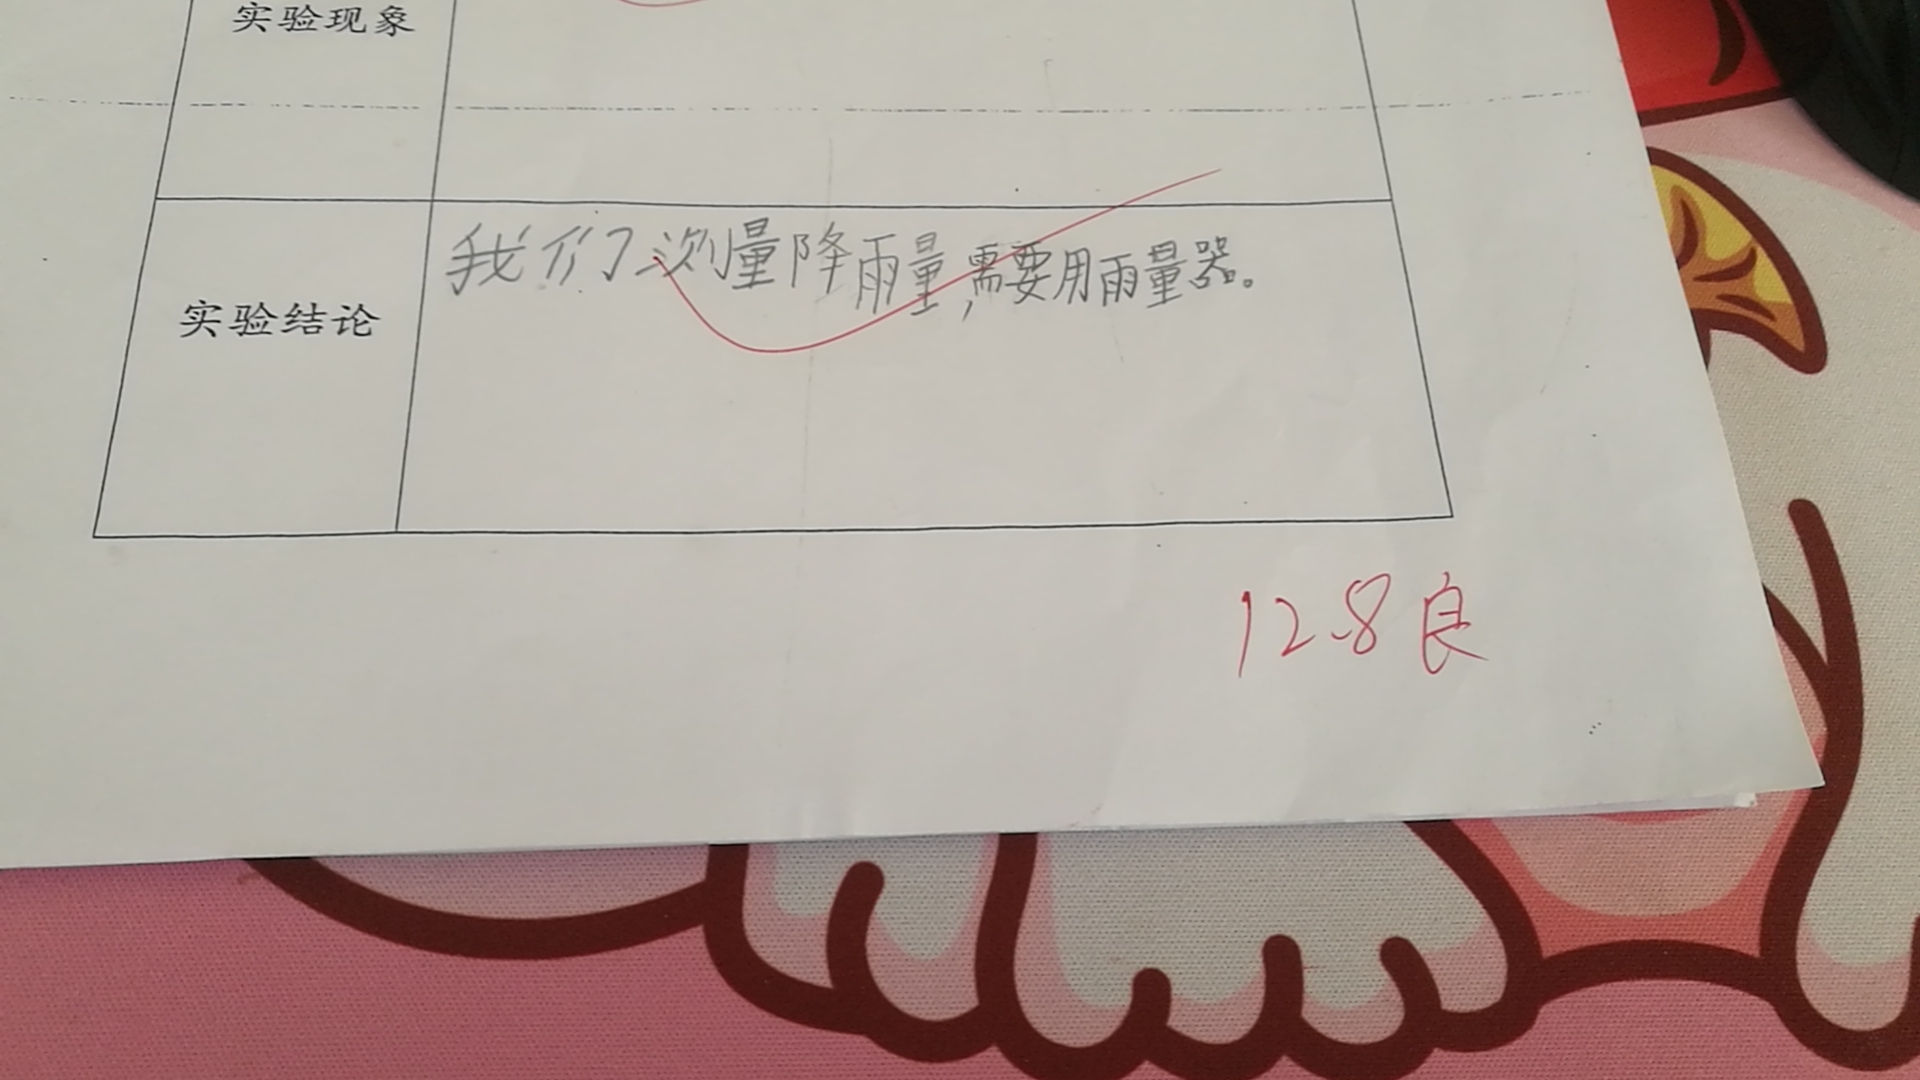 实验现象
实验结论
我们测量降雨量,需要用雨量器。
12.8 良